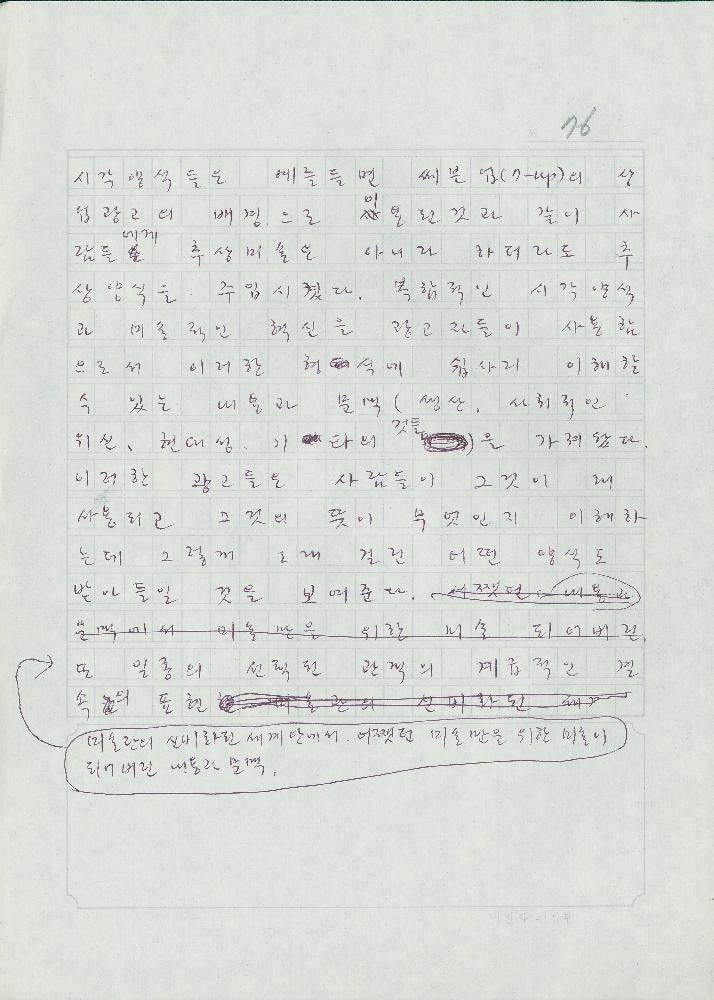 76
시각 양식들은 예를들면 쎄븐 업(7-up)의 상
업광고의 배경.으로 쓰인것과 같이 사
람들에게 추상미술은 아니라 하더라도 추
상 양식을 주입시켰다. 복합적인 시각양식
과 미술적인 혁신을 광고자들이 사용함
으로서 이러한 형식에 쉽사리 이해할
수 있는 내용과 문맥(생산, 사회적인
위신, 현대성, 기타의 것들)을 가져왔다.
이러한 광고들은 사람들이 그것이 왜
사용되고 그것의 뜻이 무엇인지 이해하
는데 그렇게 오래 걸린 어떤 양식도
받아들일 것을 보여준다. 어쨋던 내용과
문맥에서 미술만을 위한 미술 되어버린.
또 일종의 선택된 관객의 계급적인 결
속의 표현 미술관의 신비화된 세계
미술관의 신비화된 세계안에서. 어쨋던 미술만을 위한 미술이
되어버린 내용과 문맥.